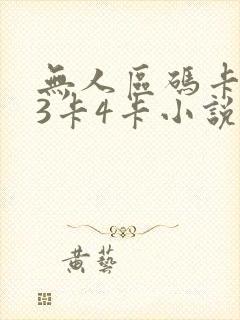 無人區碼卡
3卡4卡小說
黄藝